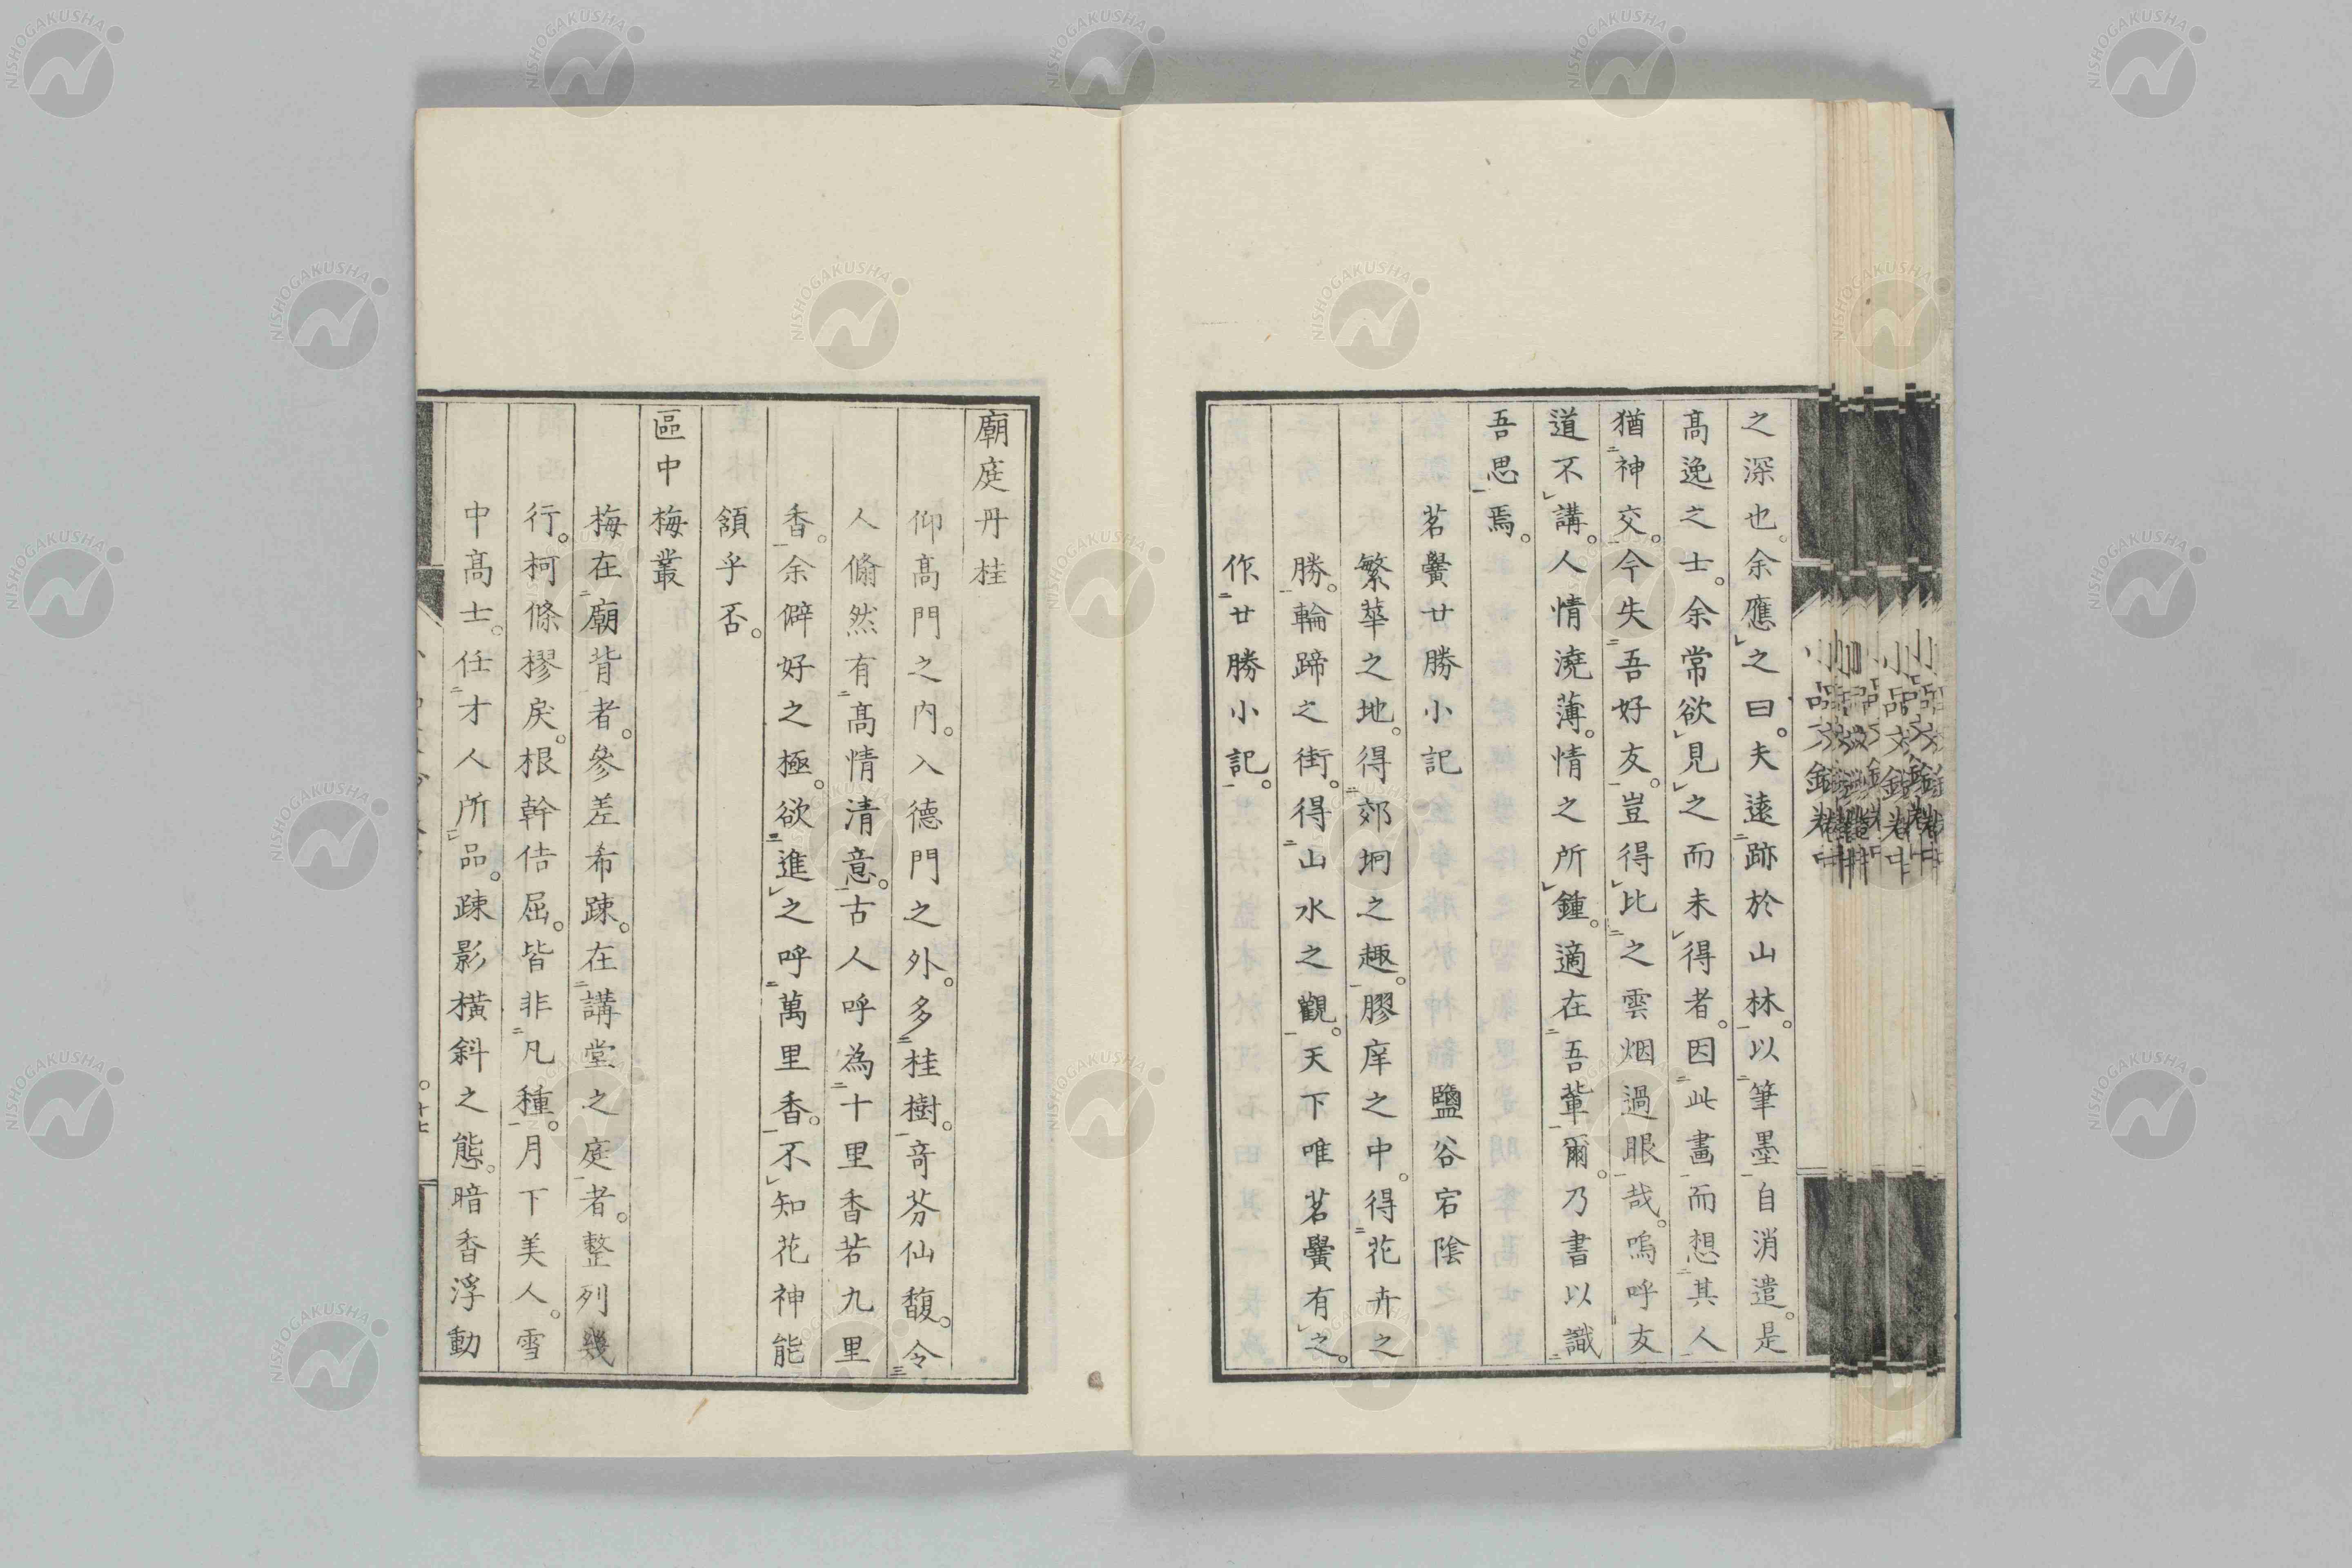 之深也。余應之曰。夫遠跡於山林。以筆墨自消遣。是
高逸之士。余常欲見之而未得者。因此畫而想其人
猶神交。今失吾好友。豈得比之雲烟過眼哉。嗚呼友
道不講。人情澆薄。情之所鍾。適在吾輩爾。乃書以識
吾思焉。
茗黌廿勝小記 鹽谷宕陰
繁華之地。得郊坰之趣。膠庠之中。得花卉之
勝。輪蹄之街。得山水之觀。天下唯茗黌有之。
作廿勝小記。
廟庭丹桂
仰高門之內。入德門之外。多桂樹。奇芬仙馥。令
人翛然有高情清意。古人呼為十里香若九里
香。余僻好之極。欲進之呼萬里香。不知花神能
頷乎否。
區中梅叢
梅在廟背者。參差希疎。在講堂之庭者。整列幾
行。柯條樛戾。根幹佶屈。皆非凡種。月下美人。雪
中高士。任才人所品。疎影橫斜之態。暗香浮動
NISHOGAKUSHA